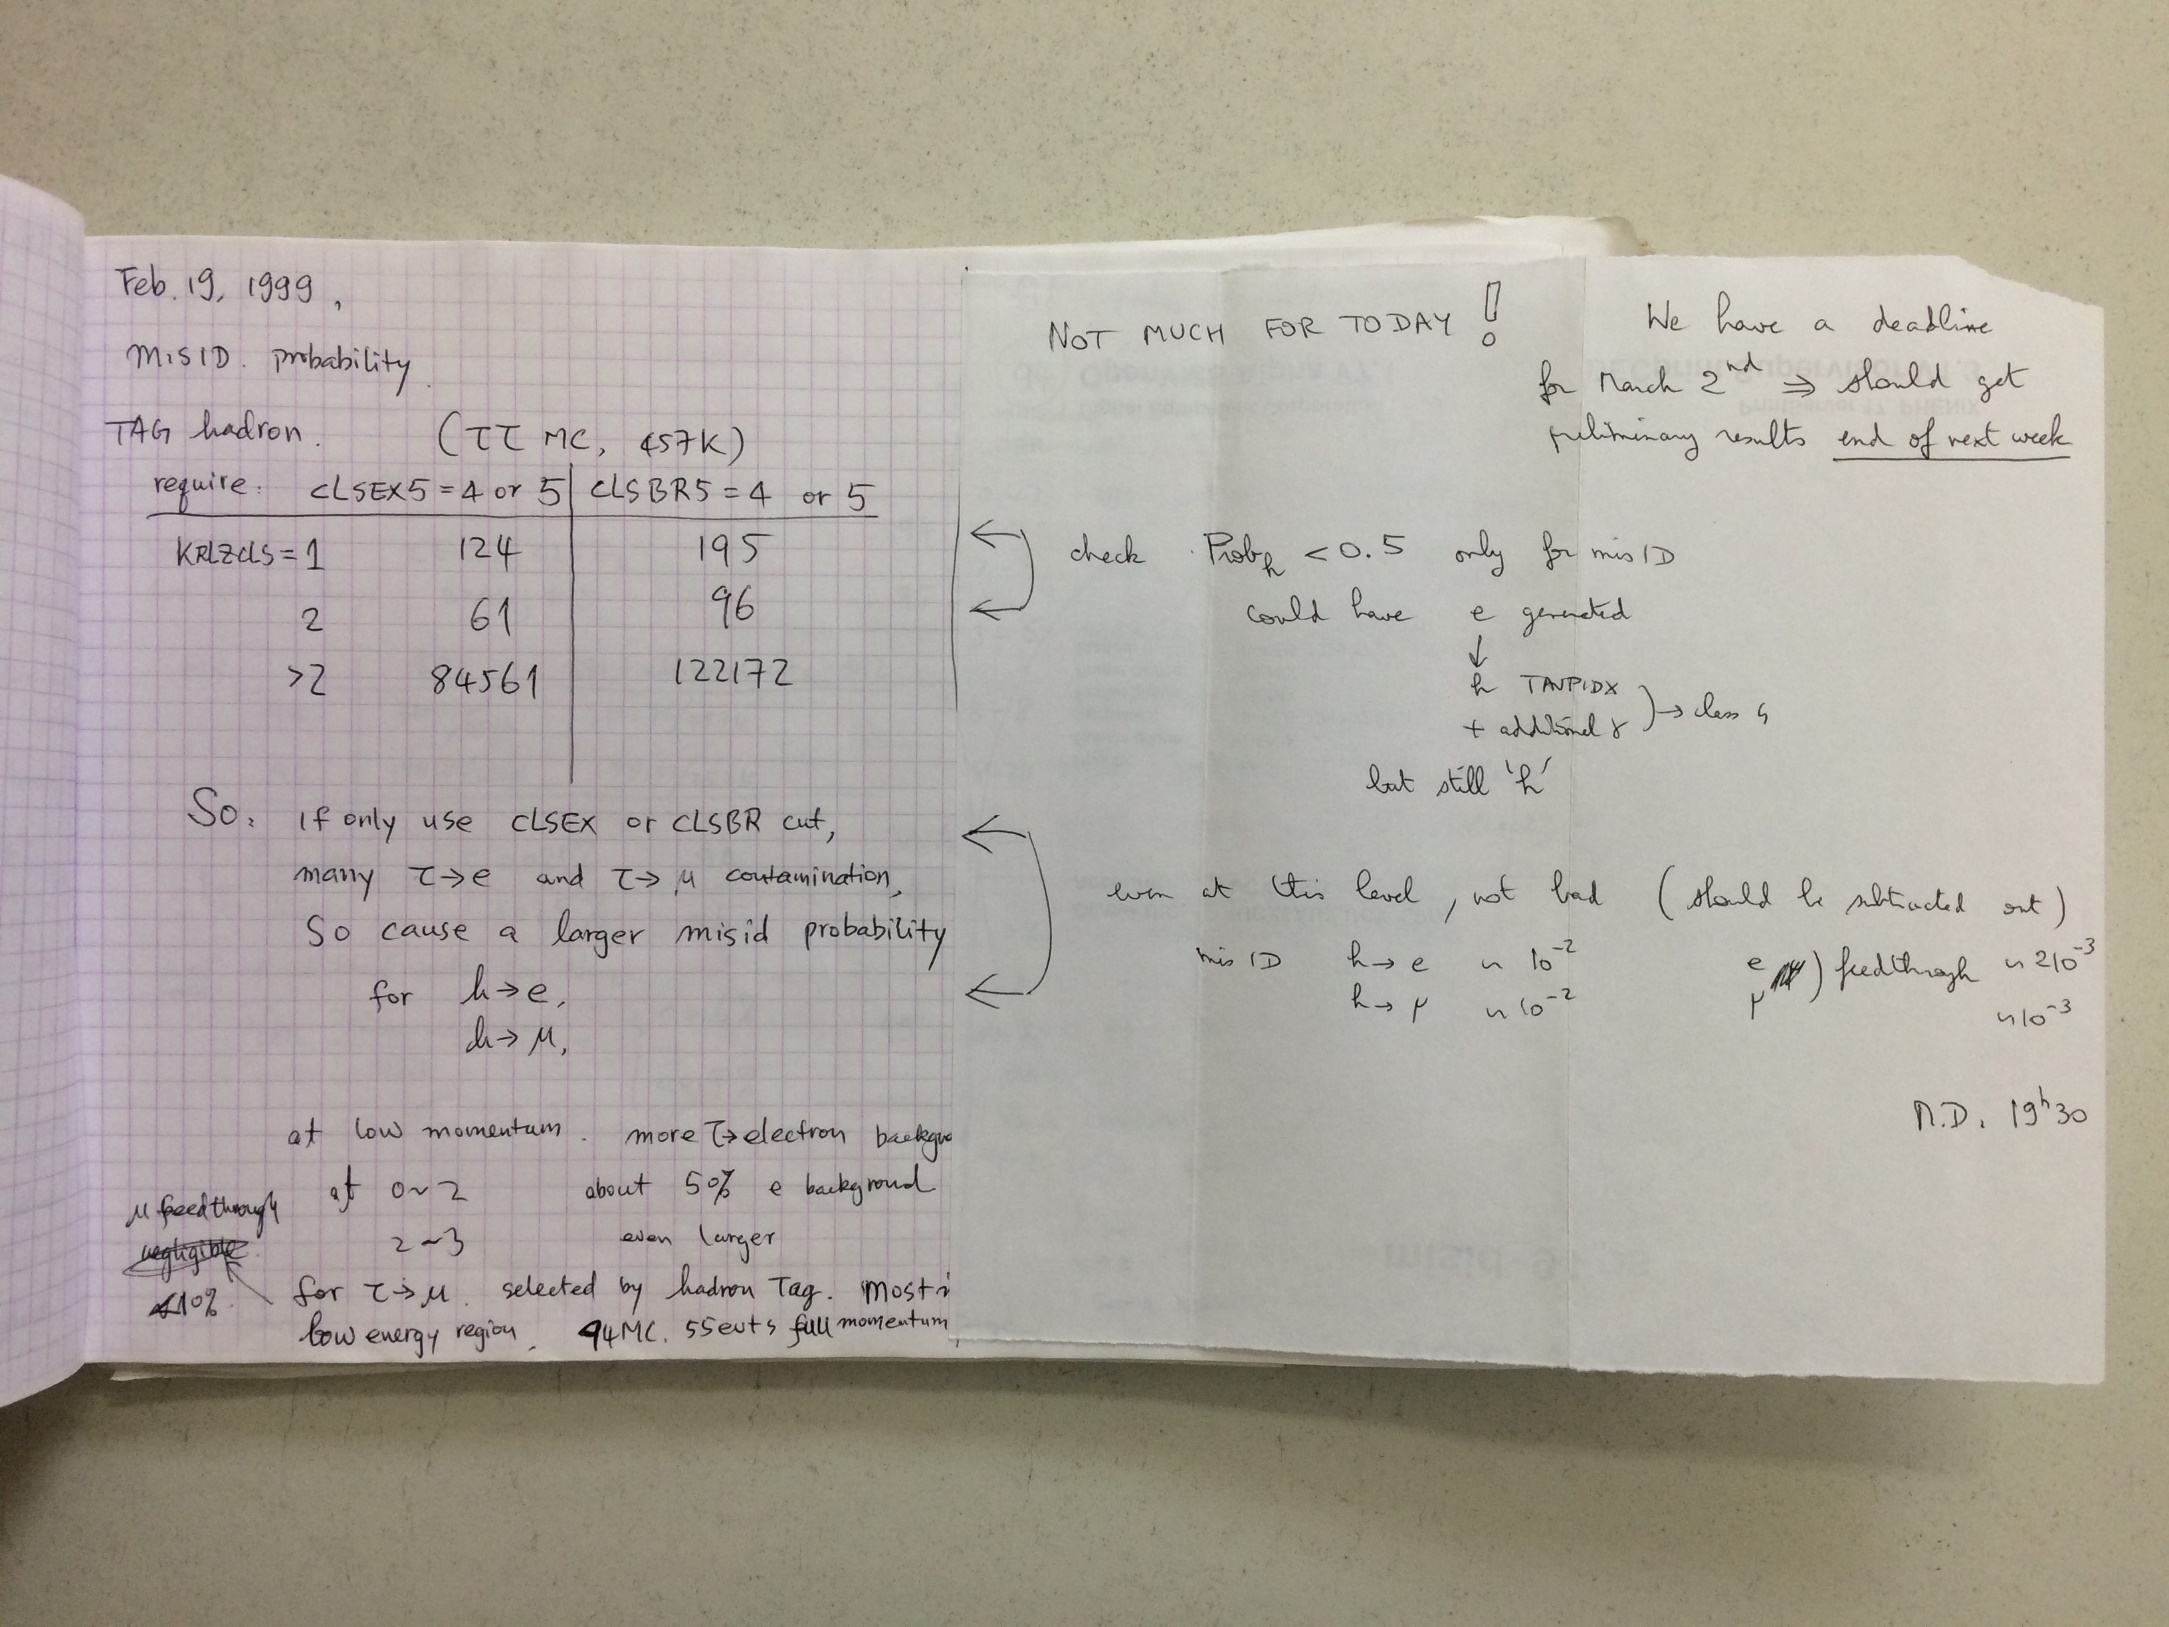 Feb. 19, 1999,
MISID. probability.
TAG hadron. (ττ MC, 457K)
require: CLSEX5 = 4 or 5 | CLSBR5 = 4 or 5
KRLZCLS = 1 124 195
2 61 96
>2 84561 122172
So: if only use CLSEX or CLSBR cut,
many τ→e and τ→μ contamination,
So cause a larger misid probability
for h→e,
h→μ,
at low momentum. more τ→electron backgro
at 0~2 about 50% e background
2~3 even larger
μ feedthrough
negligible.
<10%
for τ→μ. selected by hadron Tag. Most i
low energy region. 94MC. 55evts full momentum
NOT MUCH FOR TODAY !
We have a deadline
for March 2nd ⇒ should get
preliminary results end of next week
check Prob_h < 0.5 only for misID
could have e generated
↓
h TAUPIDX
+ additional γ ) → class 4
but still 'h'
even at this level, not bad (should be subtracted out)
misID h→e ~ 10⁻² e ) feedthrough ~ 210⁻³
h→μ ~ 10⁻² μ ~ 10⁻³
M.D. 19h30